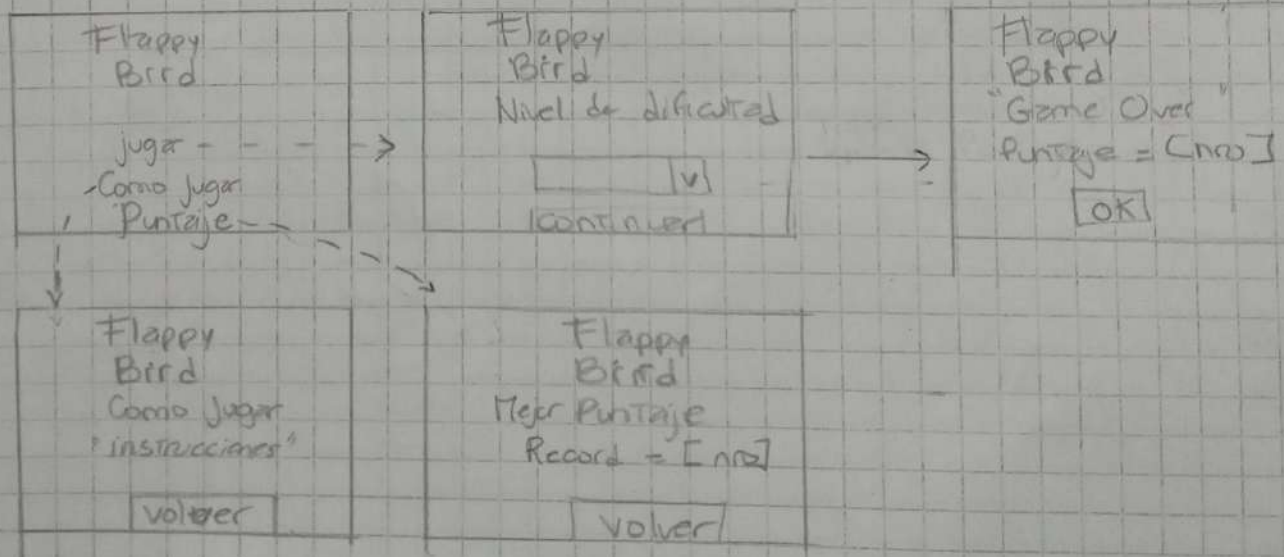 Flappy
Bird
jugar
-Como jugar
Puntaje
Flappy
Bird
Nivel de dificultad
v
continuer
Flappy
Bird
"Game Over"
Puntaje = [nro]
OK
Flappy
Bird
Como Jugar
"instrucciones"
volver
Flappy
Bird
Mejor Puntaje
Record = [nro]
volver